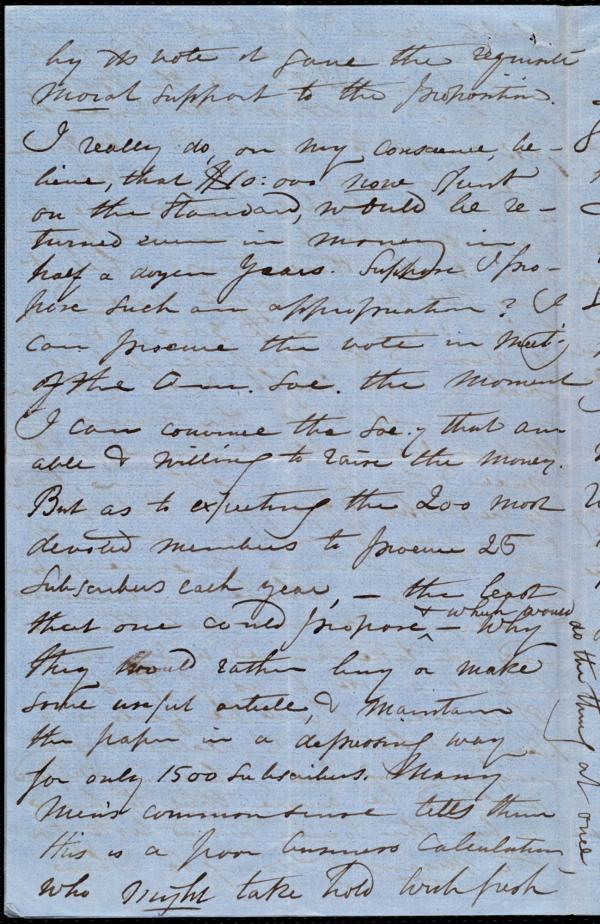 by its vote it gave the requisite
moral support to the proposition.
I really do, on my conscience, be-
lieve, that $10:000 now spent
on the Standard, would be re-
turned even in money in
half a dozen years. Suppose I pro-
pose such an appropriation? I
can procure the vote in meet.g
of the Am. Soc. the moment
I can convince the Soc.y that am
able & willing to raise the money.
But as to expecting the 200 most
devoted members to procure 25
subscribers each year, — the least
that one could propose & which would — why
do the thing at once,
they would rather buy or make
some useful article, & maintain
the paper in a depressing way
for only 1500 subscribers. Many
men's common sense tells them
this is a poor business calculation,
who might take hold with fresh